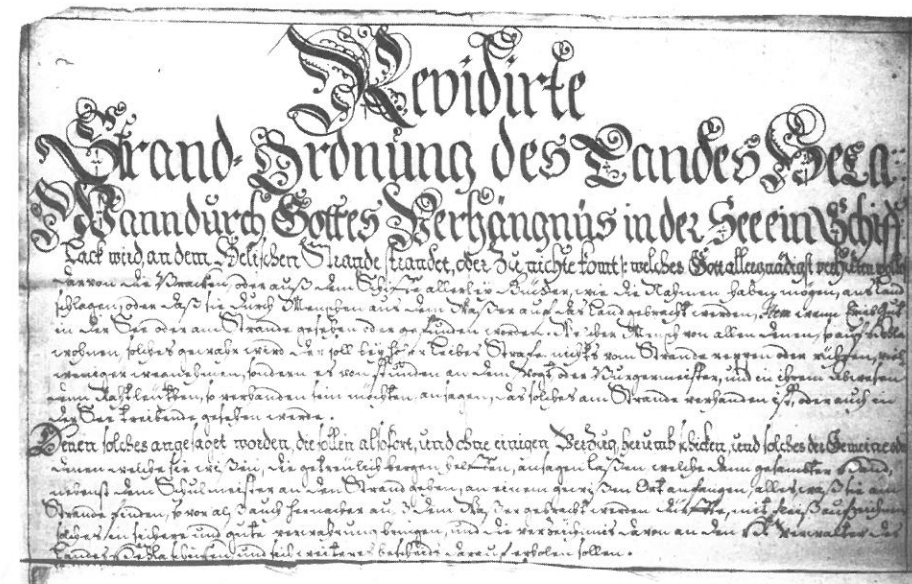 Revidirte
Strand-Ordnung des Landes Hela::
Wann durch Gottes Verhängnüs in der See ein Schiff
Lack wird, an dem Helischen Strande strandet, oder zu nichte komt |: welches Gott allergnädigst verhüten wolle
darvon die Wracken, oder auß dem Schiffe allerley Gütter, wie die Nahmen haben mögen, ans Land
schlagen, oder daß sie durch Menschen aus dem Waßer auf das Land gebracht werden, Item wann
in der See oder am Strande gesehen oder gefunden werden. Welcher Mensch von allen denen, so auf Hela
wohnen, solches gewahr wird der soll bey Leibes Strafe nichts vom Strande oder rühren, viel
weniger wegnehmen, sondern es von Stunden an dem Vogt oder Burgermeister, und in ihrem abwesen
denn Rahtleutten, so verhanden sein möchten, ansagen, das solches am Strande verhanden ist, oder auch in
der See treibende gesehen werde.
Denen solches angesaget worden, die sollen alsofort, und ohne einigen Verzug, herumb schicken, und solches der Gemeine oder
denen welche sie wißen, die getreulich bergen helffen, ansagen laßen welche dann gesambter Hand,
nebenst dem Schulmeister an den Strand gehen, an einem gewißen Ort anfangen, alles, waß sie am
Strande finden, so vor alß auch hernacher aus dem Waßer gebracht werden, mit fleiß
solches in sichere und gute verwahrung bringen, und die verzeichnüs davon an den Verwalter des
Landes Hela und sich weiteres bescheids darauf erholen sollen.